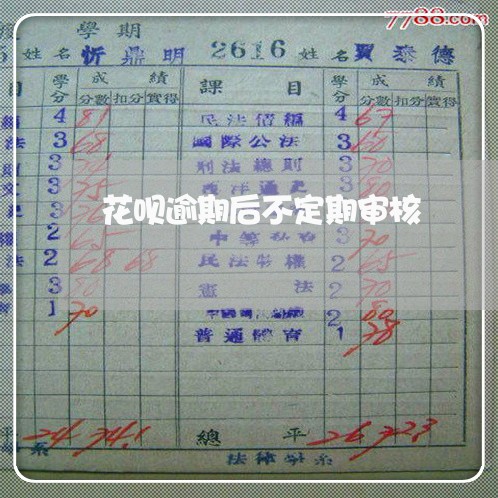 7788.com
學期
姓名 忻鼎明 2616 姓名 賈泰德
目 學分 成績 課目 學分 成績
分數 扣分 實得 分數 扣分 實得
4 81 民法債編 4 67
法 3 68 國際公法 3 60
3 刑法總則 3 70
文 3 75 西洋通史 3 80
花呗逾期后不定期审核
3 76
權 2 65 3 70
法 2 68 68 民法物權 2 65
3 80 憲法 2 70
1 70 2 80
普通體育 1 78
平 24 74.1 總平 26 72.3
系 法律學系